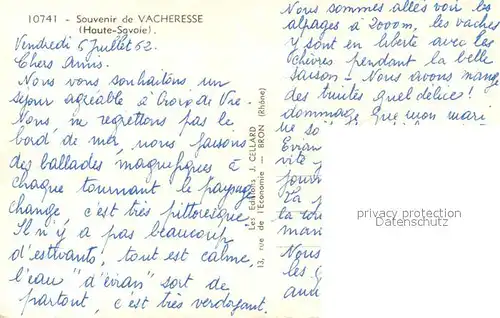 10741 - Souvenir de VACHERESSE
(Haute-Savoie).
Vendredi 6 Juillet 62.
Chers Amis.
Nous vous souhaitons un
séjour agréable à Croix de Vie.
Nous ne regrettons pas le
bord de mer, nous faisons
des ballades magnifiques à
chaque tournant le paysage
change, c'est très pittoresque.
Il n'y a pas beaucoup
d'estivants, tout est calme,
l'eau "d'évian" sort de
partout, c'est très verdoyant.
Les Editions J. CELLARD
13, rue de l'Economie - BRON (Rhône)
Nous sommes allés voir les
alpages à 2000m, les vaches
y sont en liberté avec les
chèvres pendant la belle
saison - Nous avons mangé
des truites quel délice!
dommage que mon mari
ne so
Evian
vite
La
la
mari
Nous
les
privacy protection
ansichtskarten-center.de